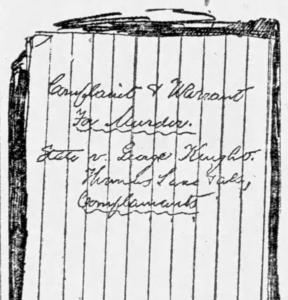 Complaint & Warrant
For Murder.
State v. George Knight.
Thomas
Complainant